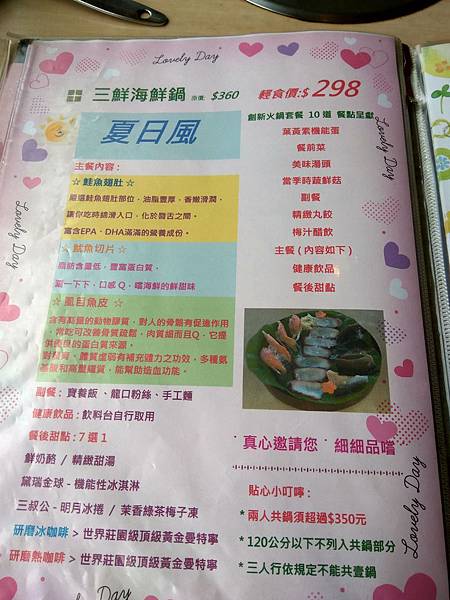 Lovely Day
三鮮海鮮鍋 原價: $360 輕食價:$ 298
夏日風
主餐內容:
☆ 鮭魚翅肚 ☆
嚴選鮭魚翅肚部位,油脂豐厚,香嫩滑潤,
讓你吃時綿滑入口,化於唇舌之間。
富含EPA、DHA滿滿的營養成份。
☆ 魷魚切片 ☆
脂肪含量低,豐富蛋白質,
涮一下下,口感Q,嚐海鮮的鮮甜味
☆ 虱目魚皮 ☆
含有高量的動物膠質,對人的骨骼有促進作用
,常吃可改善骨質疏鬆,肉質細而且Q,它提
供優良的蛋白質來源。
對腰膏、體質虛弱有補充體力之功效,多種氨
基酸和高量膠質,能幫助造血功能。
副餐: 寶養飯、龍口粉絲、手工麵
健康飲品: 飲料台自行取用
餐後甜點: 7 選 1
鮮奶酪 / 精緻甜湯
黛瑞金球 - 機能性冰淇淋
三叔公 - 明月冰捲 / 茉香綠茶梅子凍
研磨冰咖啡 > 世界莊園級頂級黃金曼特寧
研磨熱咖啡 > 世界莊園級頂級黃金曼特寧
創新火鍋套餐 10 道 餐點呈獻
葉黃素機能蛋
餐前菜
美味湯頭
當季時蔬鮮菇
副餐
精緻丸餃
梅汁醋飲
主餐 ( 內容如下 )
健康飲品
餐後甜點
真心邀請您 細細品嚐
貼心小叮嚀:
* 兩人共鍋須超過$350元
* 120公分以下不列入共鍋部分
* 三人行依規定不能共壹鍋
Lovely Day
Lovely Day
Lovely Day
Lovely Day